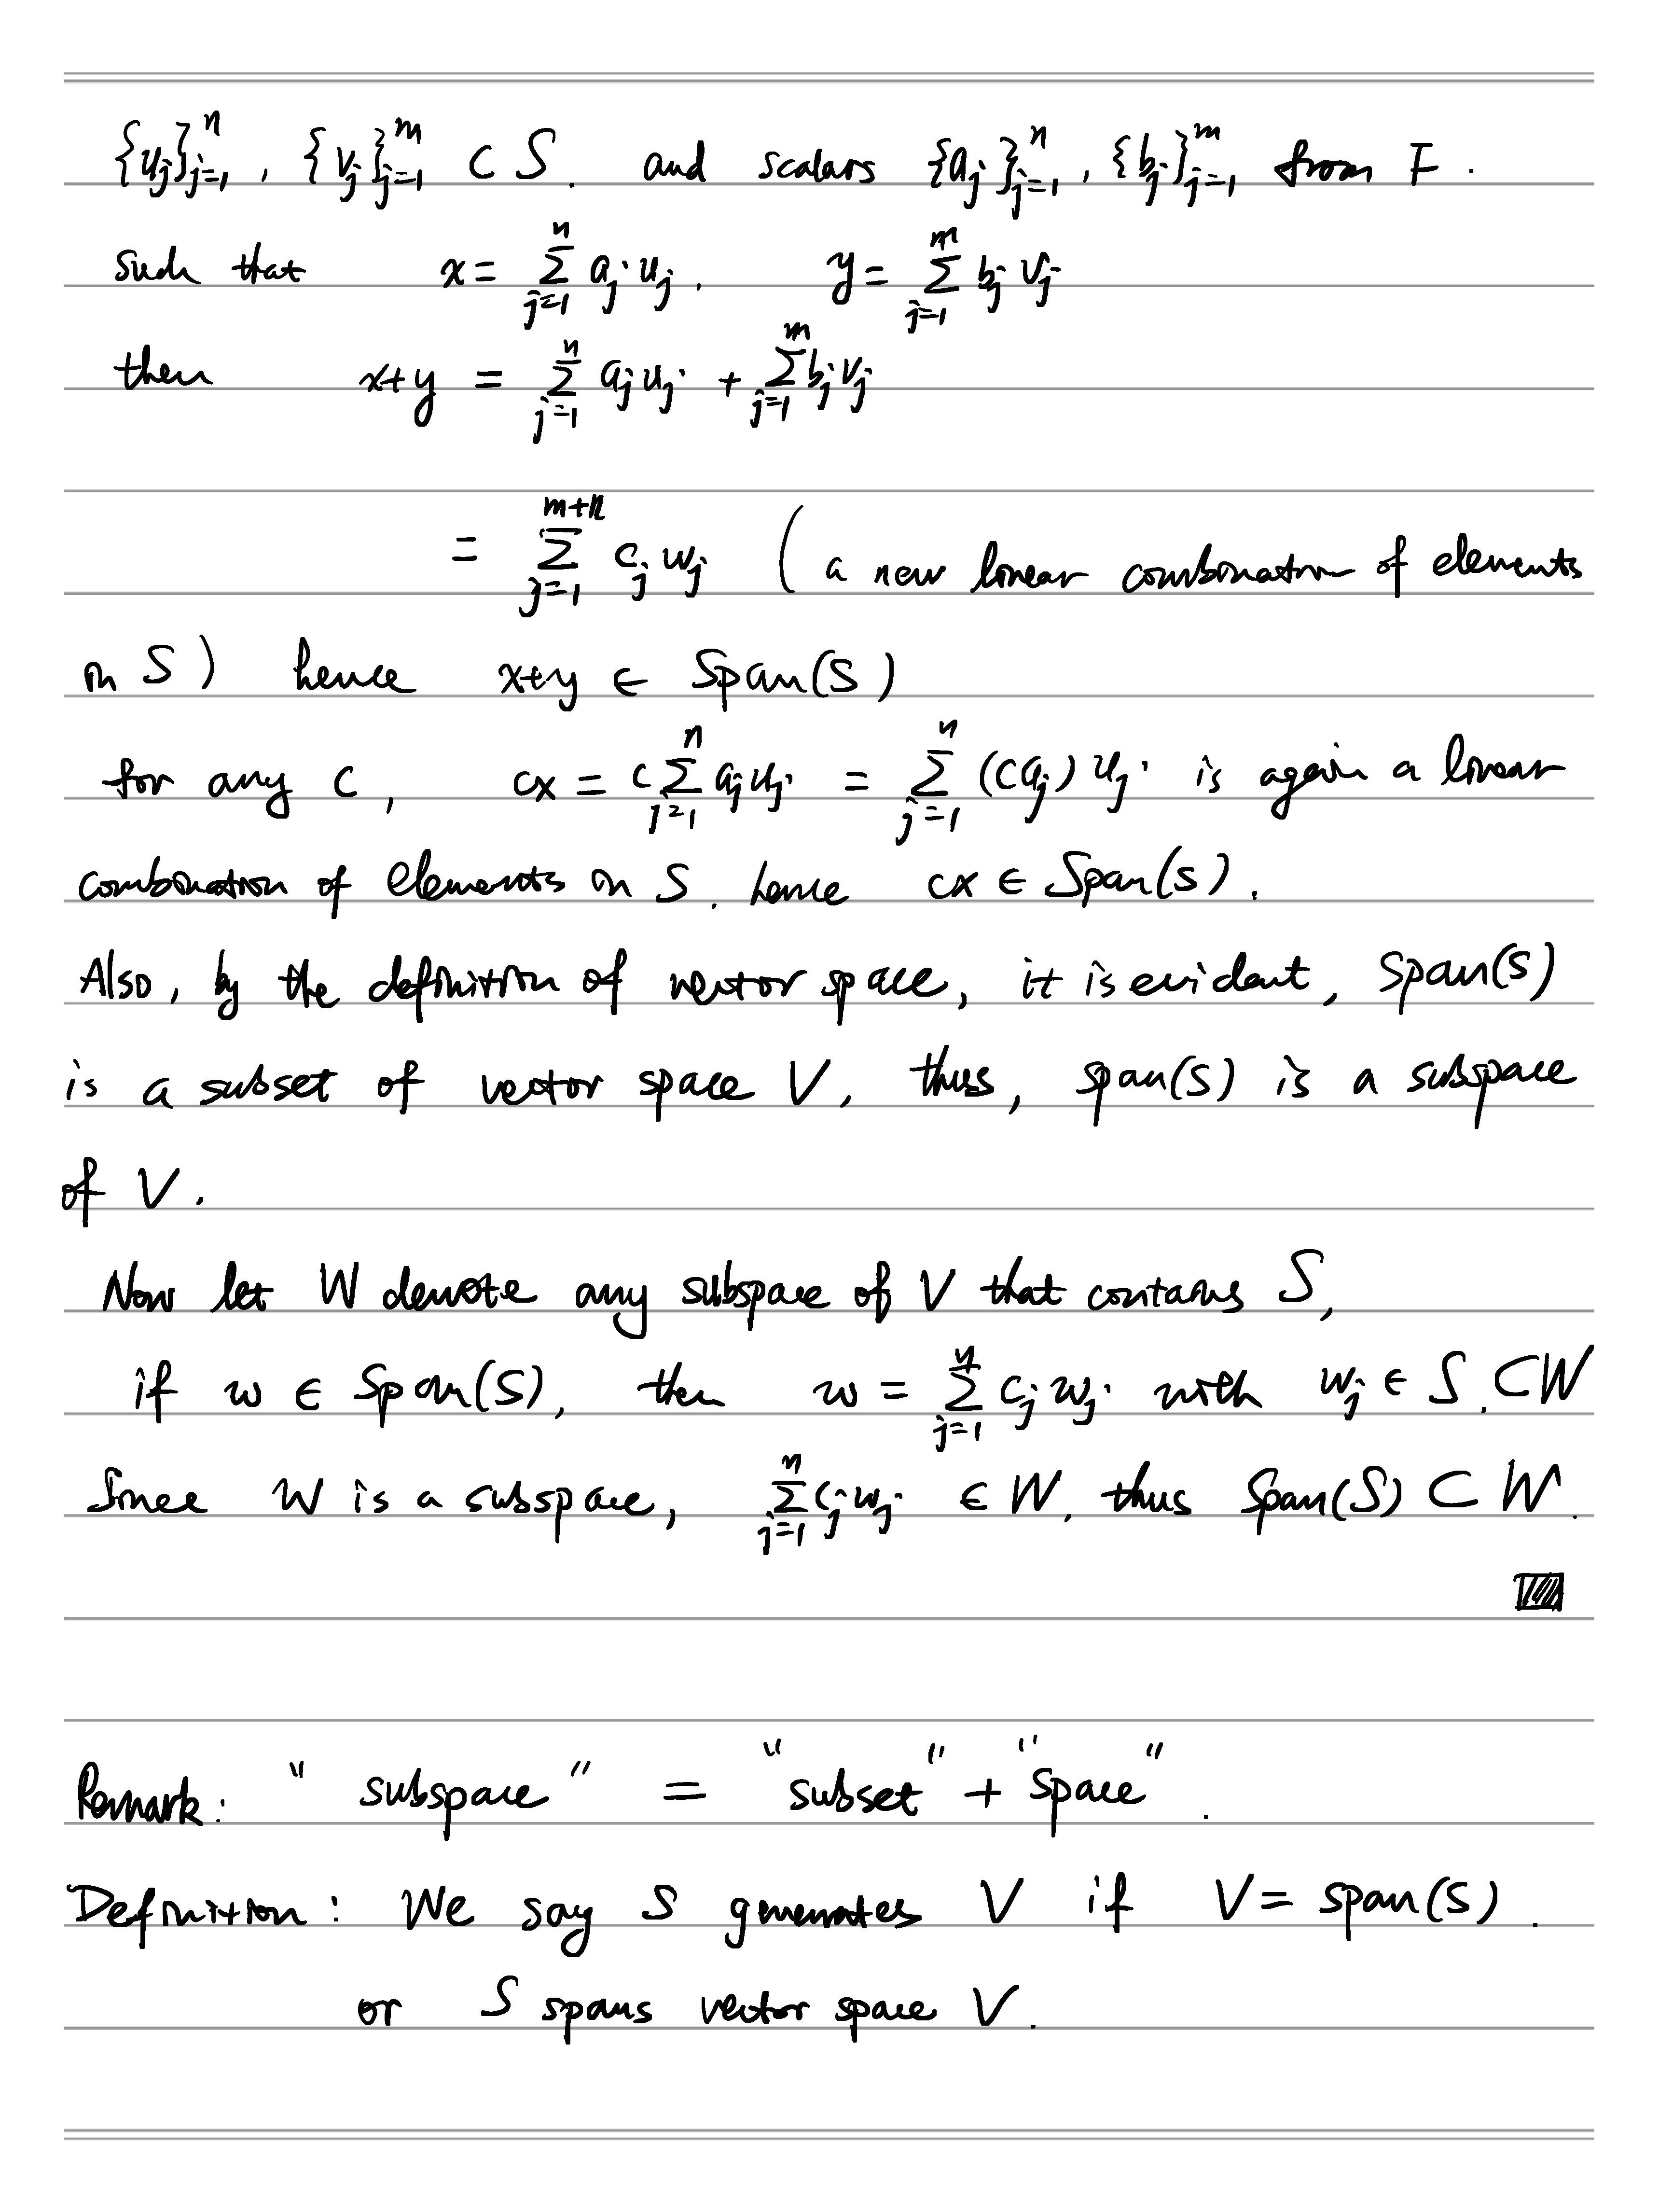 {u_j}_{j=1}^n, {v_j}_{j=1}^m ⊂ S. and scalars {a_j}_{j=1}^n, {b_j}_{j=1}^m from F.
such that x = \sum_{j=1}^n a_j u_j. y = \sum_{j=1}^m b_j v_j
then x+y = \sum_{j=1}^n a_j u_j + \sum_{j=1}^m b_j v_j
= \sum_{j=1}^{m+n} c_j w_j (a new linear combination of elements
in S) hence x+y ∈ Span(S)
for any c, cx = c \sum_{j=1}^n a_j u_j = \sum_{j=1}^n (c a_j) u_j is again a linear
combination of elements in S. hence cx ∈ Span(S).
Also, by the definition of vector space, it is evident, Span(S)
is a subset of vector space V, thus, span(S) is a subspace
of V.
Now let W denote any subspace of V that contains S,
if w ∈ Span(S), then w = \sum_{j=1}^n c_j w_j with w_j ∈ S. ⊂ W
Since W is a subspace, \sum_{j=1}^n c_j w_j ∈ W. thus Span(S) ⊂ W.
Remark: "subspace" = "subset" + "space".
Definition: We say S generates V if V = span(S).
or S spans vector space V.